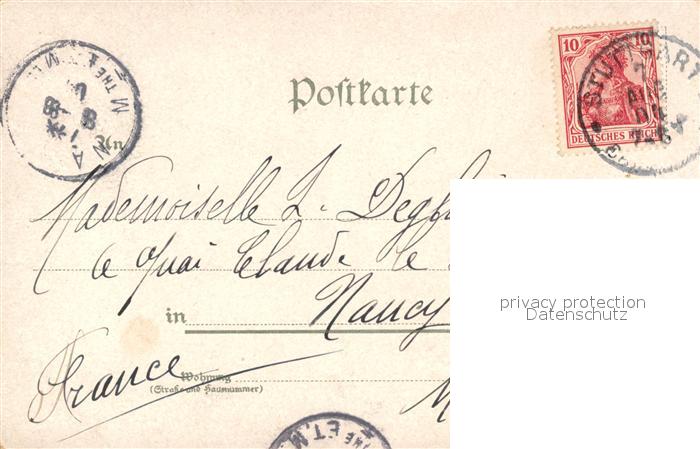 Postkarte
10 10
DEUTSCHES REICH
STUTTGART
An
Mademoiselle L. Degl
6 Quai Claude le
in Nancy
France
Wohnung
(Straße und Hausnummer)
privacy protection
Datenschutz